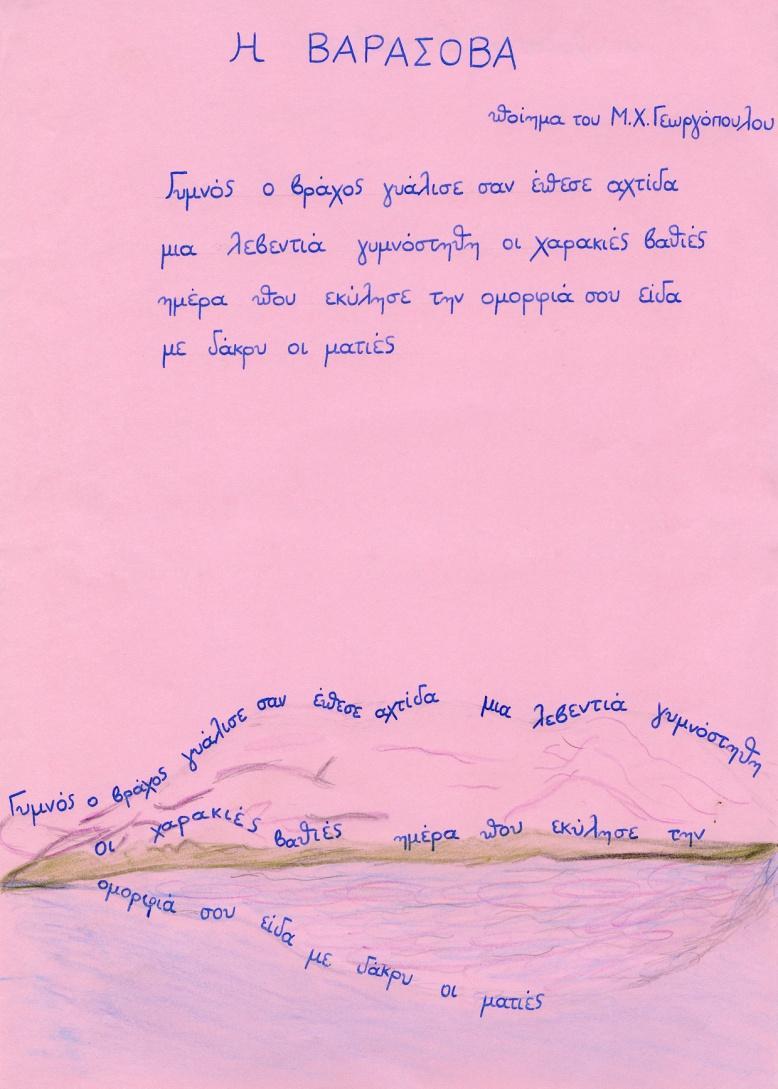 Η ΒΑΡΑΣΟΒΑ
ποίημα του Μ.Χ.Γεωργόπουλου
Γυμνός ο βράχος γυάλισε σαν έπεσε αχτίδα
μια λεβεντιά γυμνόστηθη οι χαρακιές βαθιές
ημέρα που εκύλησε την ομορφιά σου είδα
με δάκρυ οι ματιές
Γυμνός ο βράχος γυάλισε σαν έπεσε αχτίδα μια λεβεντιά γυμνόστηθη
οι χαρακιές βαθιές ημέρα που εκύλησε την
ομορφιά σου είδα με δάκρυ οι ματιές